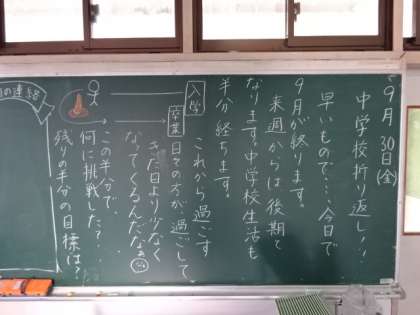 9月30日(金)
中学校折り返し!!
早いもので…、今日で
9月が終ります。
来週からは後期と
なります。中学校生活も
半分経ちます。
入学
卒業
これから過ごす
日々の方が、過ごして
きた日より少なく
なってくるんだなぁ
この半分で、
何に挑戦した?
残りの半分の目標は?
の連絡